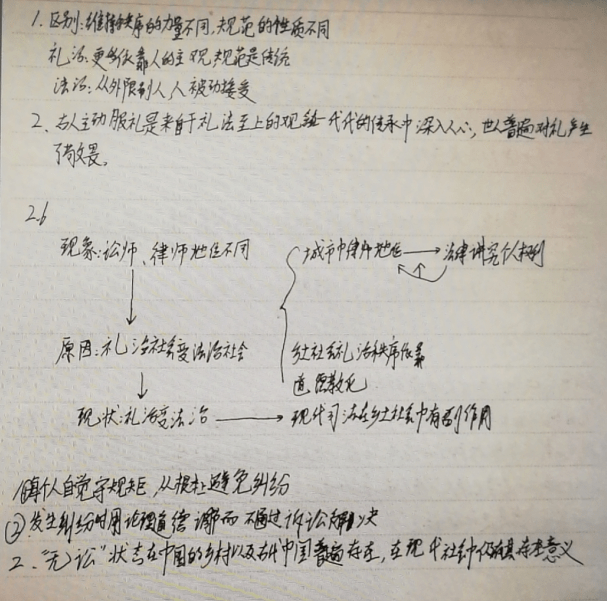 1. 区别:维持秩序的力量不同,规范的性质不同
礼治:更多依靠人的主观,规范是传统
法治:从外限制人,人被动接受
2、古人主动服礼是来自于礼法至上的观念一代代的传承中深入人心,世人普遍对礼产生
了敬畏。
2.6
现象:讼师、律师地位不同
城市中律师地位 → 法律讲究个人权利
原因:礼治社会变法治社会
乡土社会礼治秩序依靠
道德教化
现状:礼治变法治 → 现代司法在乡土社会中有副作用
每个人自觉守规矩,从根本上避免纠纷
② 发生纠纷时用伦理道德调节而不通过诉讼解决
2、“无讼”状态在中国的乡村以及古代中国普遍存在,在现代社会中仍有其存在意义